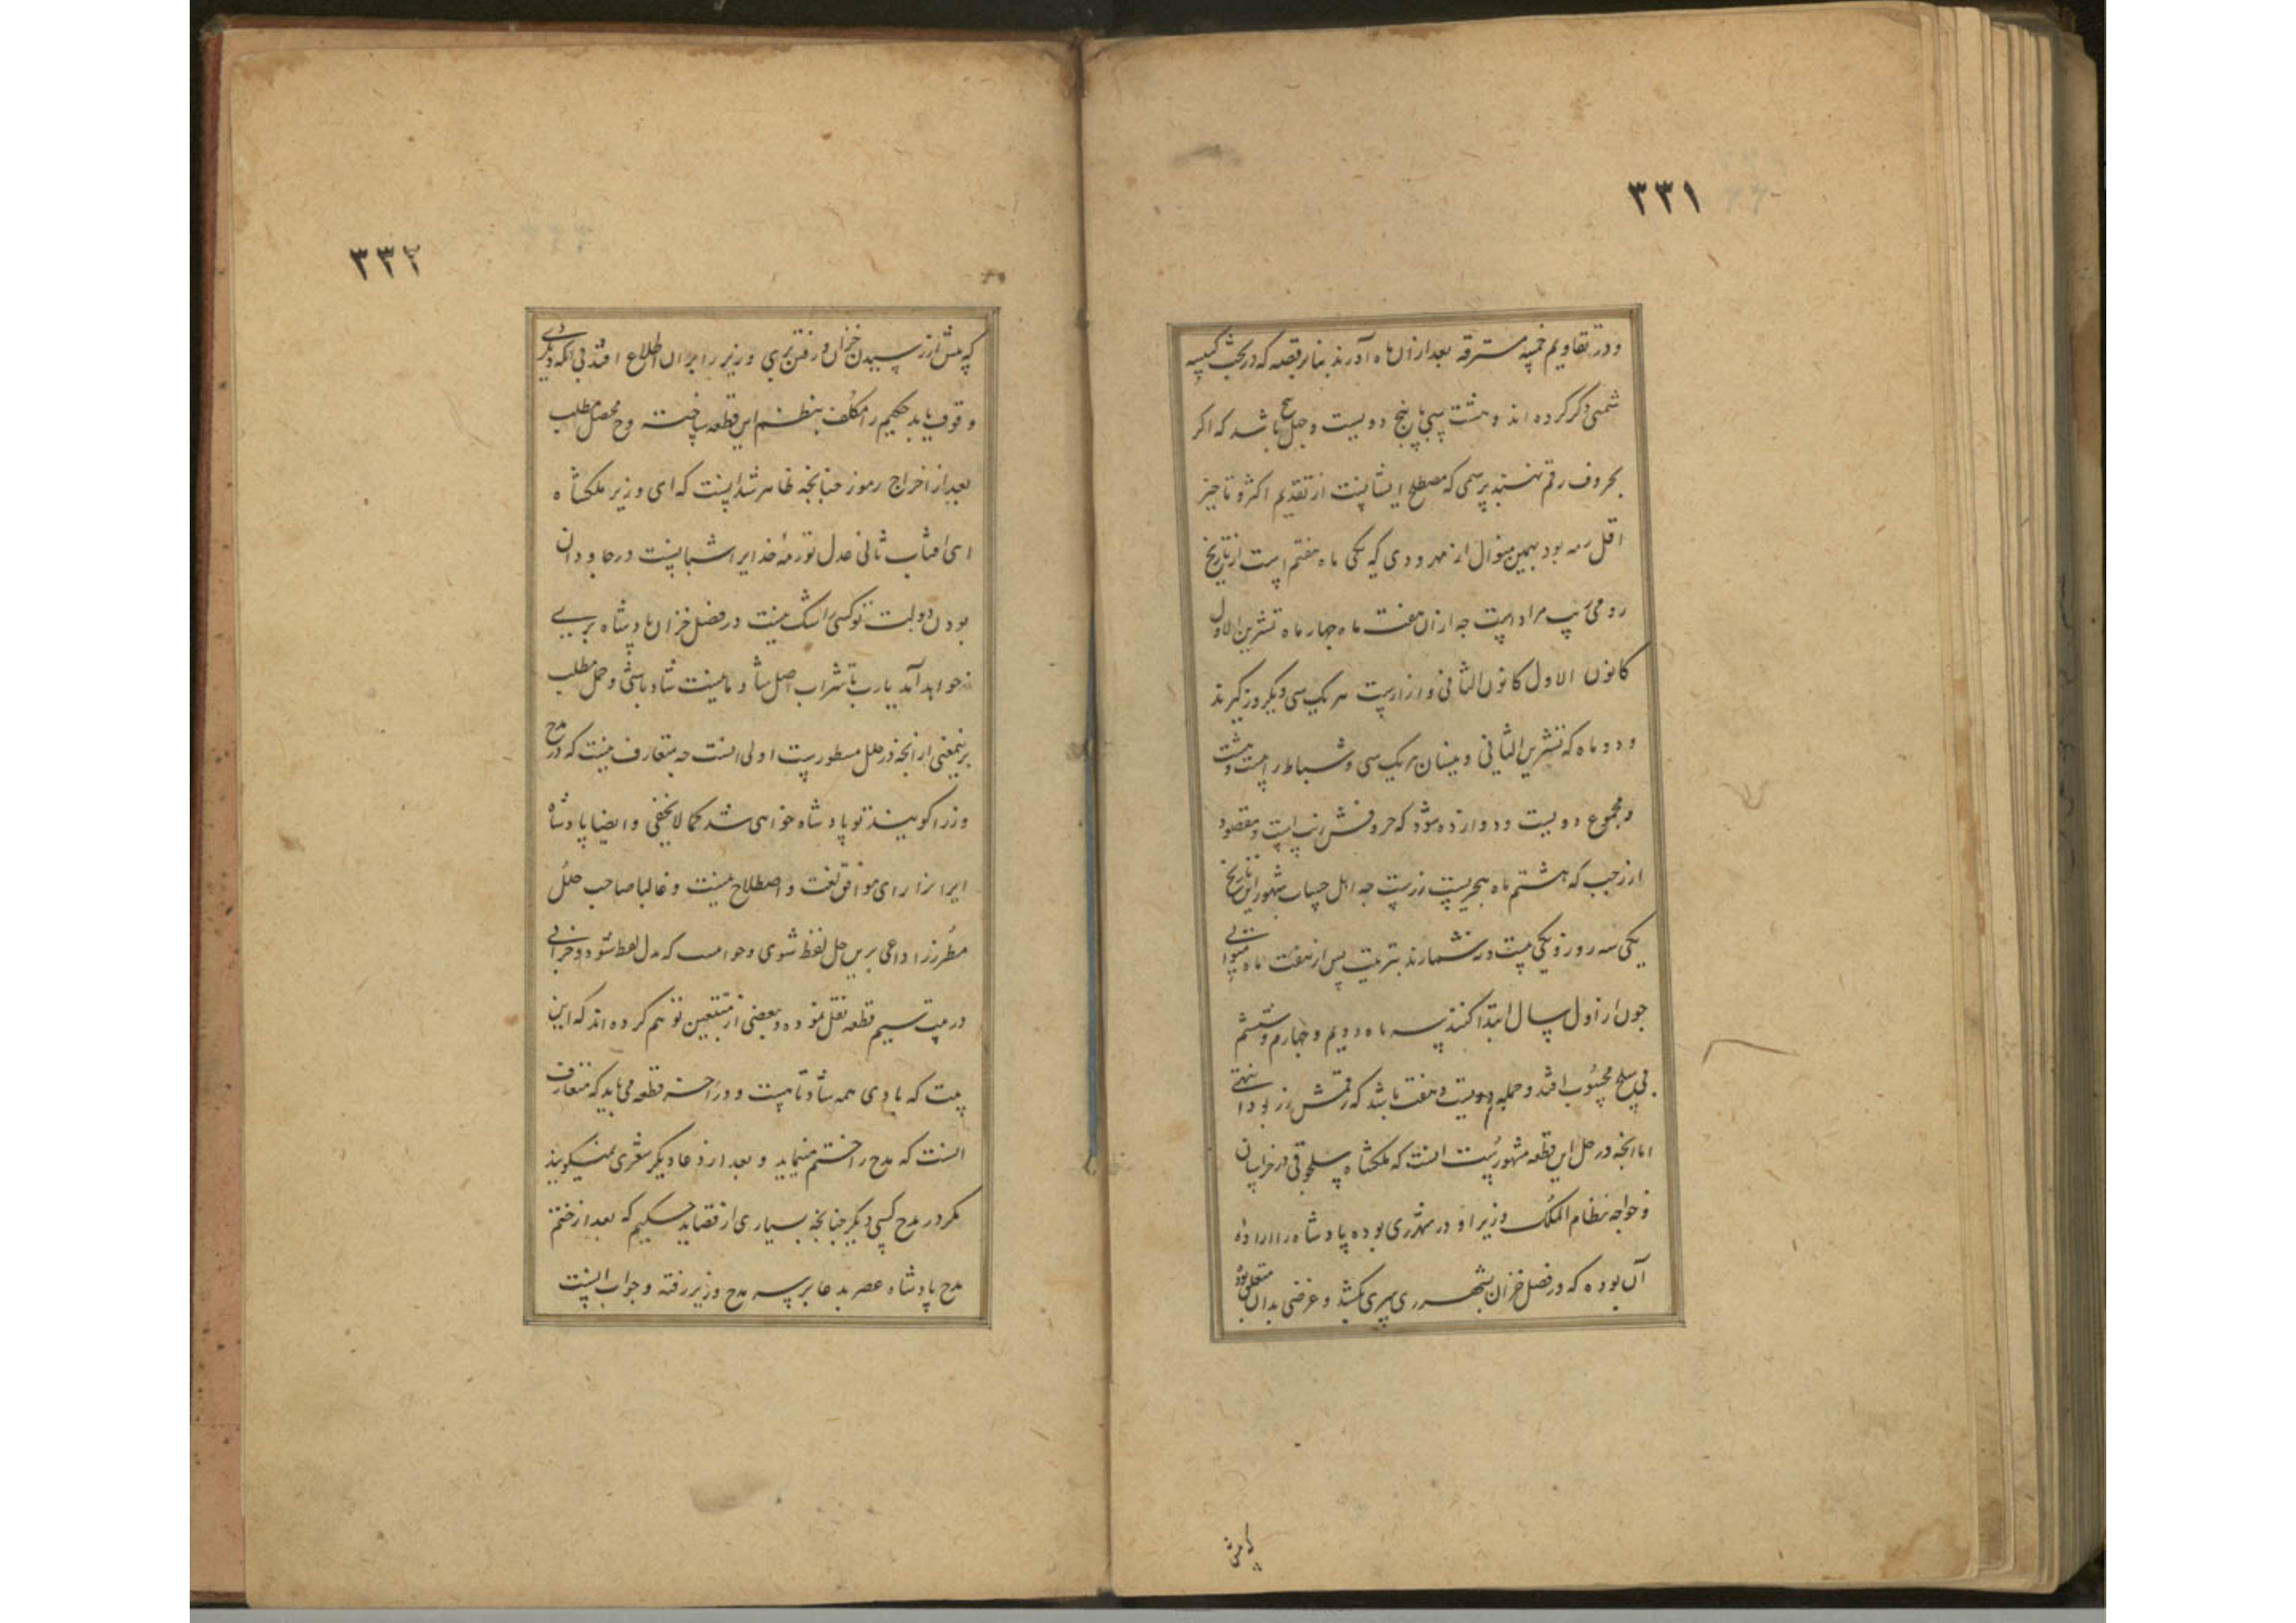 ٣٣١
ودر تقاویم خمسه مسترقه بعد ازان ماه آورند بنابر قصه که در بحث کبیسه
شمسی ذکر کرده اند و هشت سی با پنج دویست و چهل باشد که اکر
بحروف رقم نهند برسمی که مصطلح ایشانست از تقدیم اکثر و تاخیر
اقل رمه بود بهمین منوال از مهر و دی که یکی ماه هفتم است از تاریخ
رومی ریب مراد است چه ازان هفت ماه چهار ماه تشرین الاول
کانون الاول کانون الثانی و ازارست هر یک سی و یک روز کیرند
و دو ماه که تشرین الثانی و نیسان هر یک سی و شباط را بیست و هشت
و مجموع دویست و دوازده شود که حروفش ریب است و مقصود
از رجب که هشتم ماه هجریست رزست چه اهل حساب شهور این تاریخ
یکی سه روز و یکی بیست و نه شمارند بترتیب پس از هفت ماه متوالی
چون از اول سال ابتدا کنند سه ماه دویم و چهارم و ششم
بی سلخ محسوب افتد و جمله دویست و هفت باشد که رقمش رز بود انتهی
اما انچه در حل این قطعه مشهورست انست که ملکشاه سلجوقی در خراسان
و خواجه نظام الملک وزیر او در شهر ری بوده پادشاه را اراده
آن بوده که در فصل خزان بشهر ری سری کشد و غرضی بدان متعلق بود
که پیش از رسیدن خزان و رفتن بری وزیر را بران اطلاع افتد بی انکه دیکری
٣٣٢
وقوف یابد حکیم را مکلف بنظم این قطعه ساخت و محصل مطلب
بعد از اخراج رموز چنانچه ظاهر شد اینست که ای وزیر ملکشاه
ای افتاب ثانی عدل تو رمهٔ خدایرا شبانیست در جاودان
بودن دولت تو کسی را شک نیست در فصل خزان پادشاه بری
خواهد آمد یارب تا شراب اصل شادمانیست شاد باشی و حمل مطلب
برینمعنی از انچه در حلل مسطورست اولی است چه متعارف نیست که در مدح
وزرا کویند تو پادشاه خواهی شد کمالا یخفی و ایضا پادشاه
ایرانرا رای موافق لغت و اصطلاح نیست و غالبا صاحب حلل
مطرز را داعی برین حل لفظ شوی که بدل لفظ شود و خزانی
در بیت سیم قطعه نقل نموده و بعضی از متتبعین توهم کرده اند که این
بیت که بادی همه شاد تا بیست و در آخر قطعه می باید که متعارف
انست که مدح را ختم مینماید و بعد از دعا دیکر شعری نمیکویند
مکر در مدح کسی دیکر چنانچه بسیاری از قصاید حکیم که بعد از ختم
مدح پادشاه عصر بدعا بر سر مدح وزیر رفته و جواب اینست